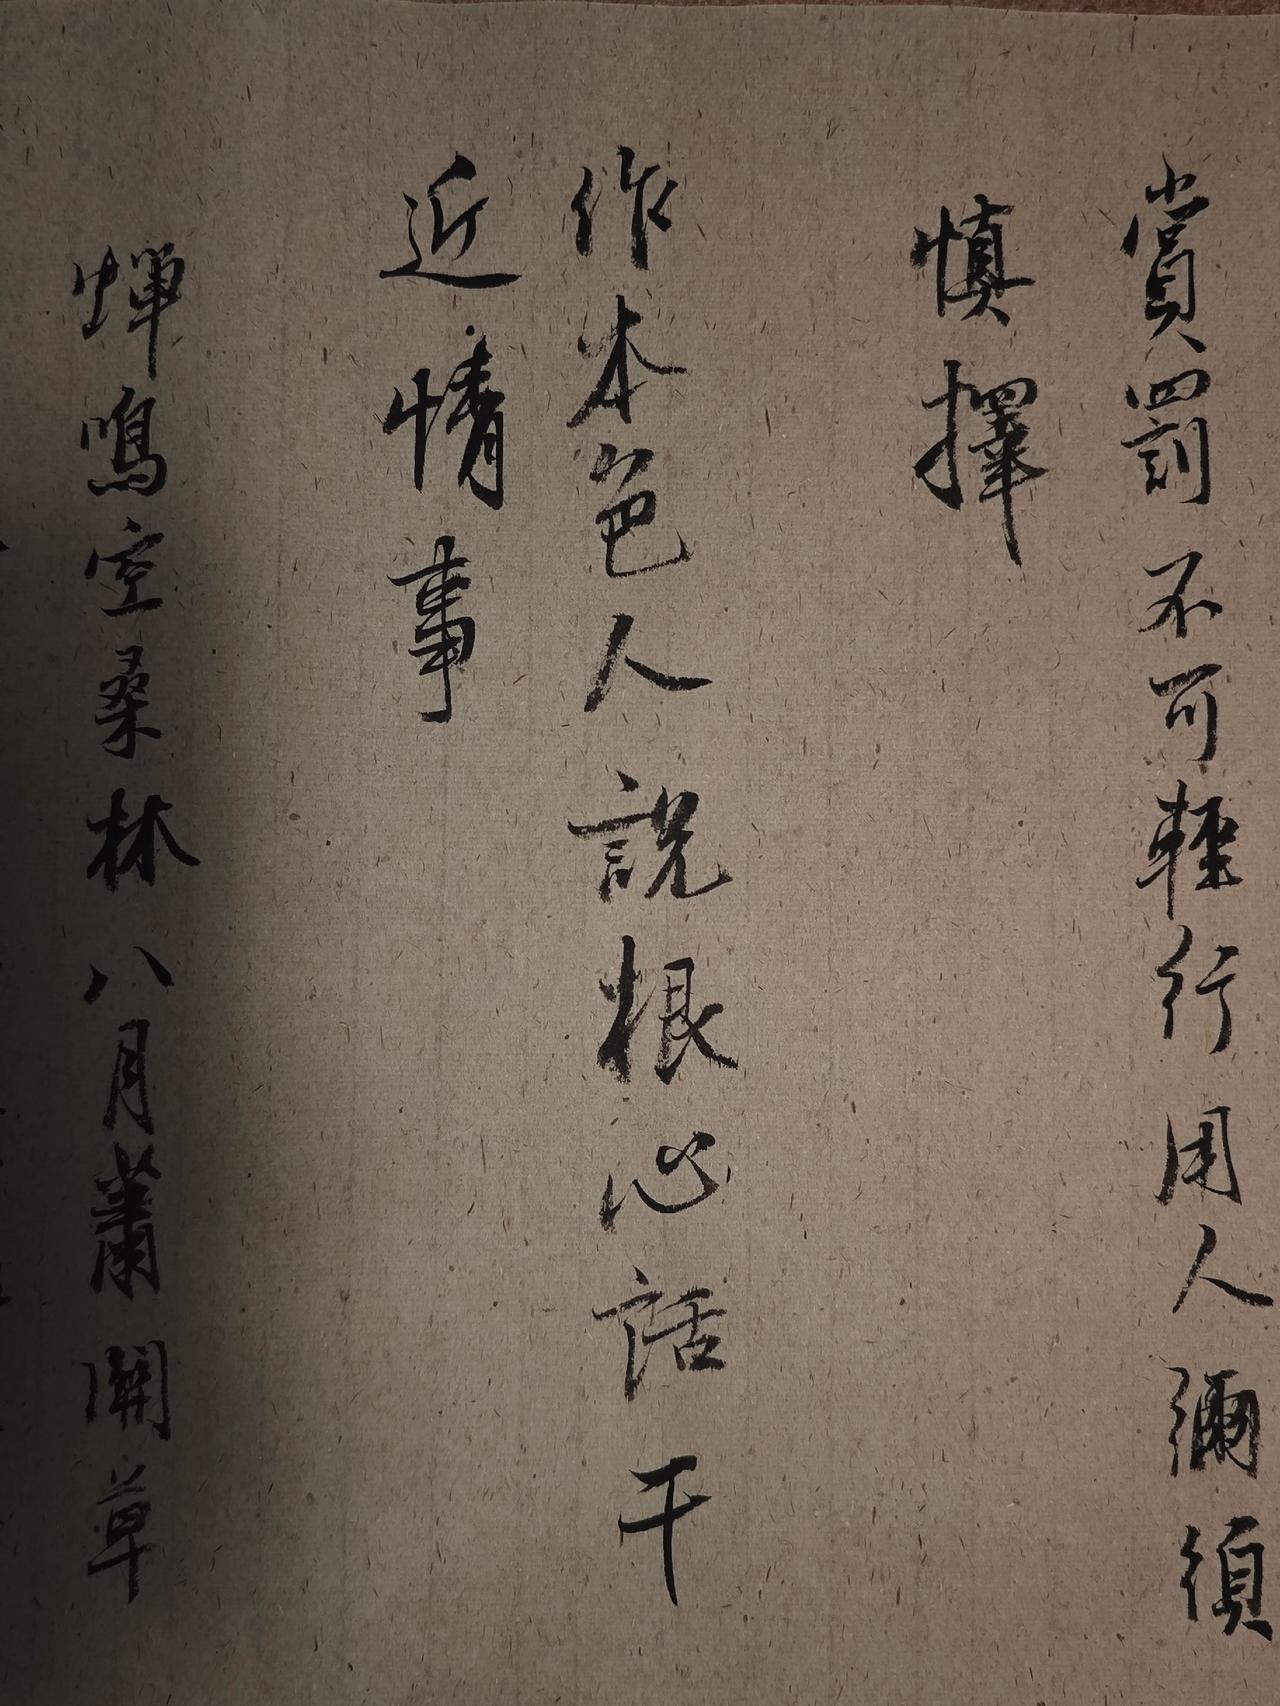 賞罰不可輕行用人彌須
慎擇
作本色人說根心話干
近情事
蟬鳴空桑林八月蕭關草